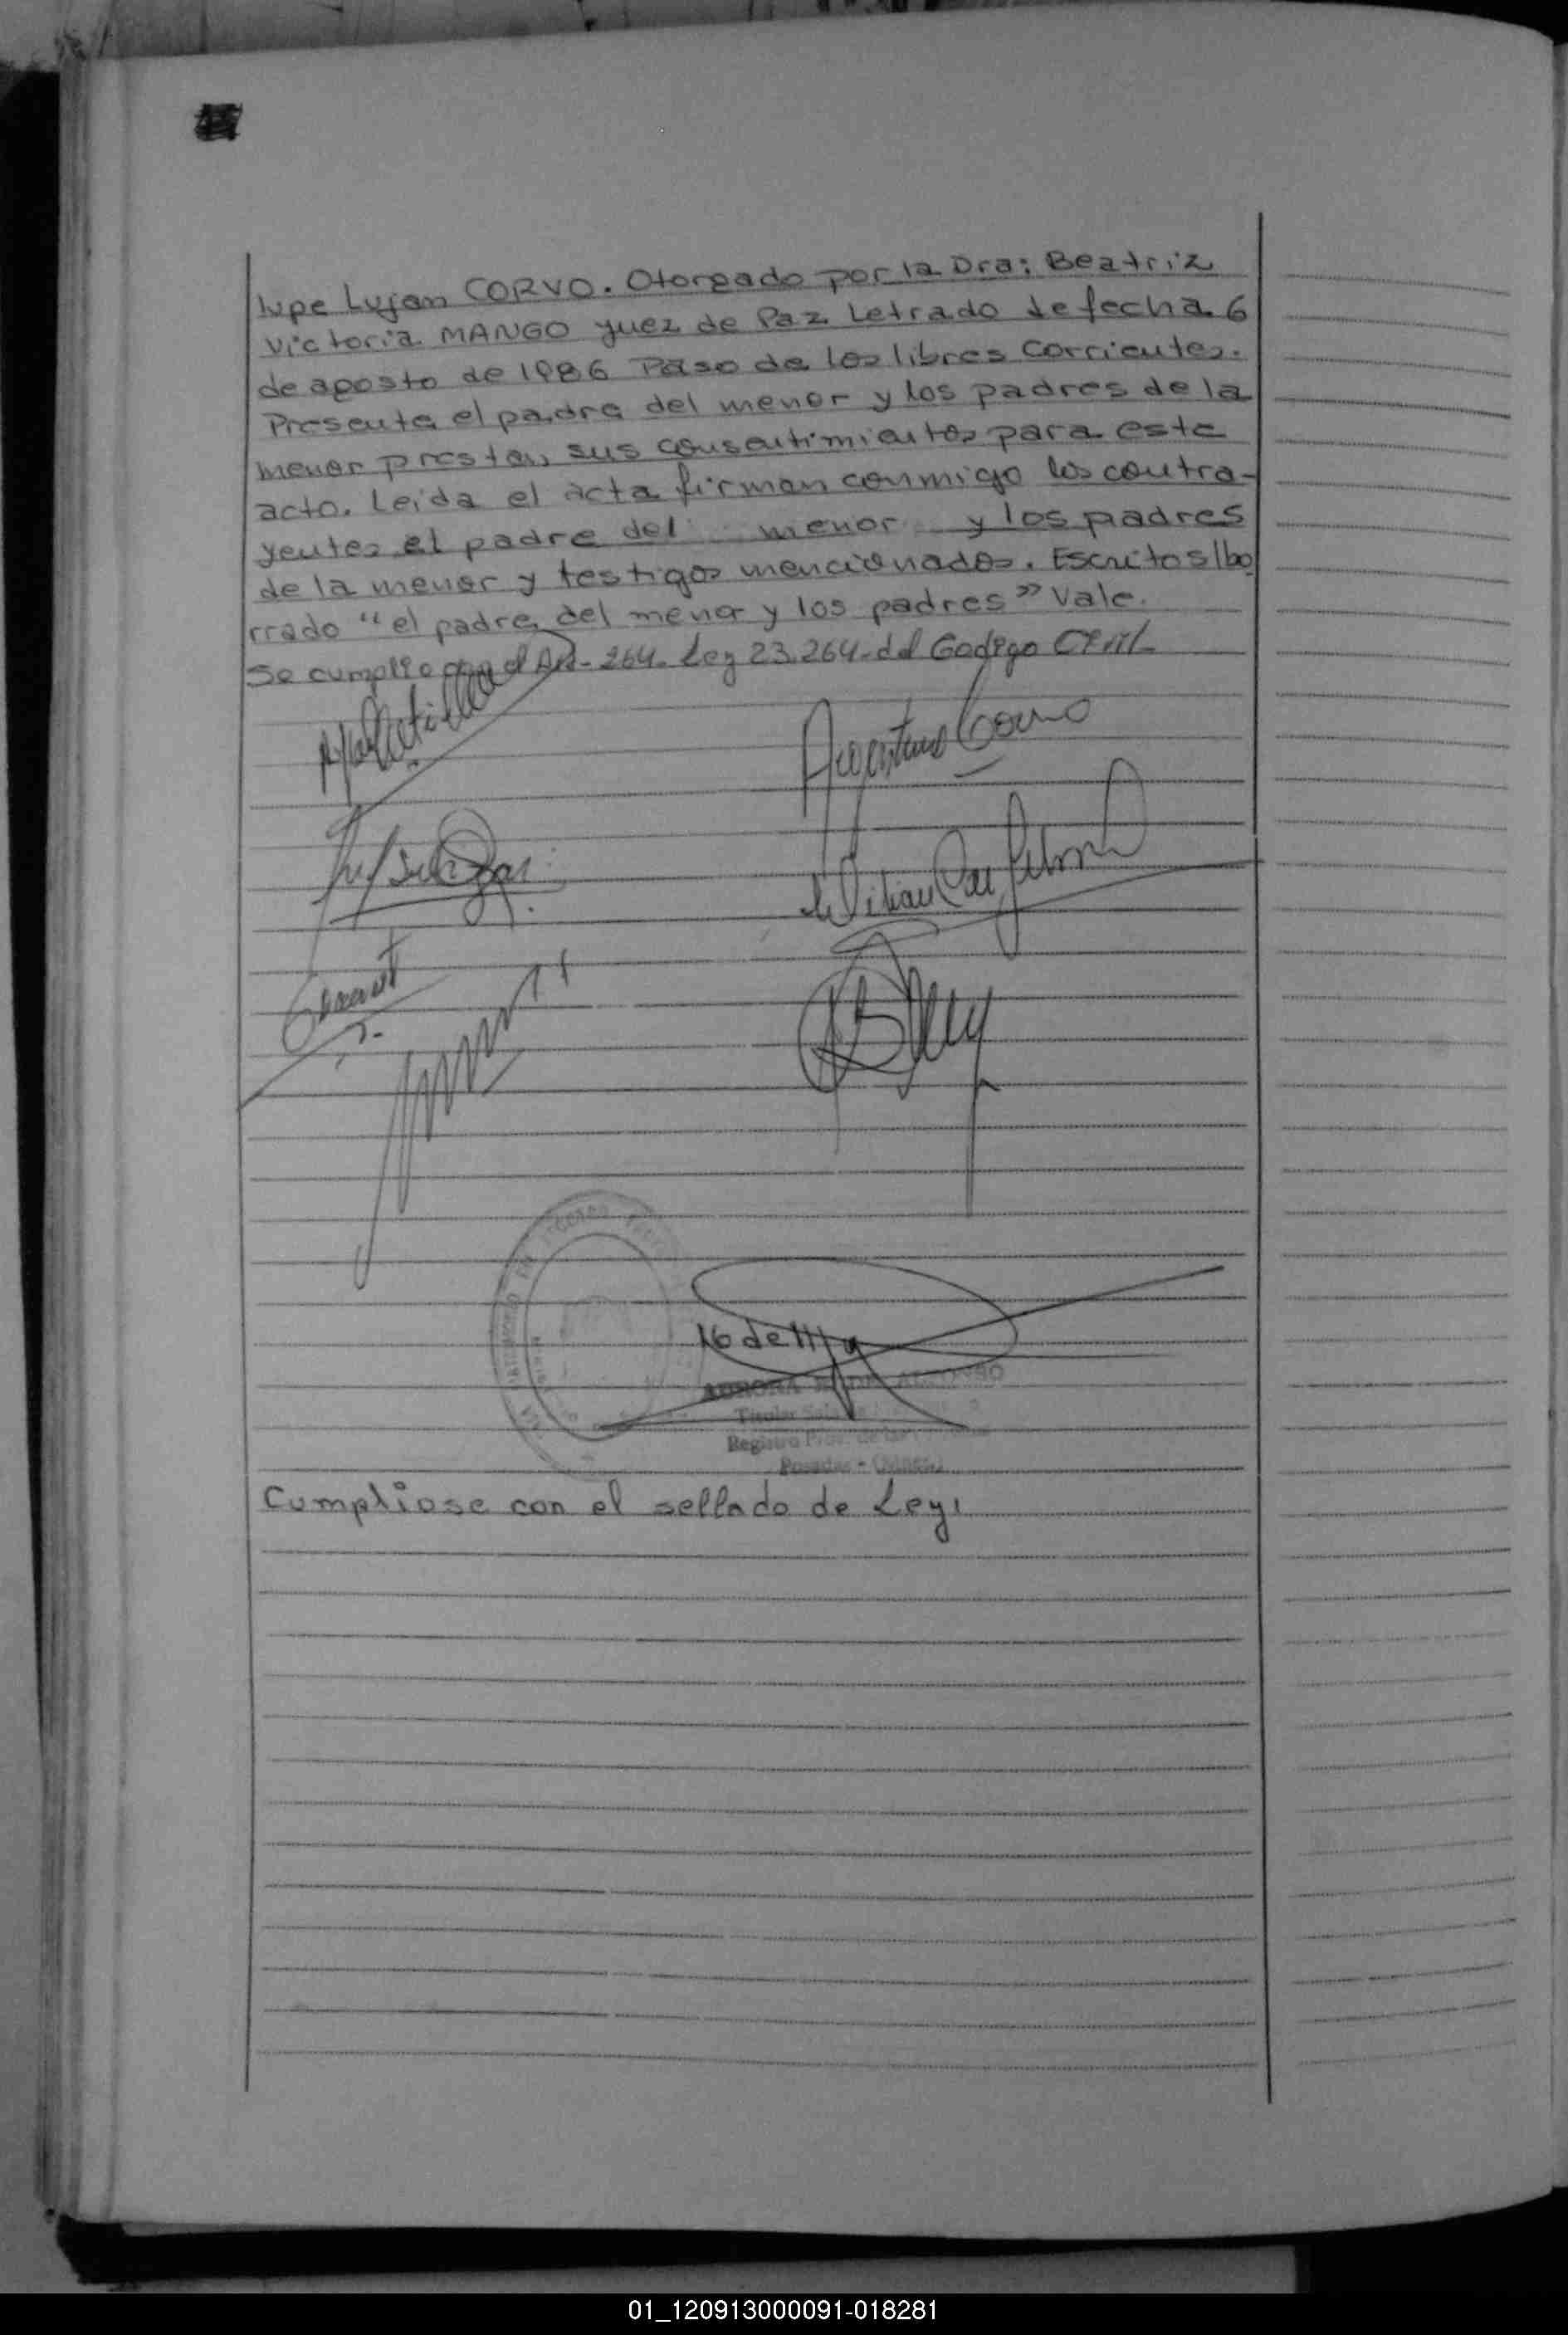 lupe Lujan CORVO. Otorgado por la Dra: Beatriz
Victoria MANGO Juez de Paz Letrado de fecha 6
de agosto de 1986 Paso de los libres Corrientes.
Presente el padre del menor y los padres de la
menor prestan sus consentimientos para este
acto. Leída el acta firman conmigo los contra-
yentes el padre del menor y los padres
de la menor y testigos mencionados. Escritos/bo
rrado "el padre del menor y los padres" Vale.
Se cumplio con el Art- 264. Ley 23.264-del Codigo Civil
AURORA ALFONSO
Titular
Registro Prov. de las
Posadas -
Cumpliose con el sellado de Ley.
01_120913000091-018281